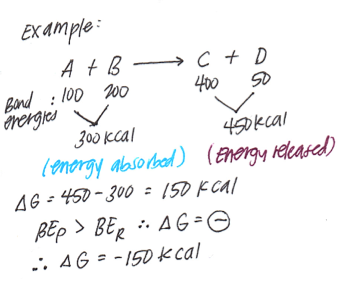 Example:
A + B → C + D
Bond energies : 100 200 400 50
300 kcal 450 kcal
(energy absorbed) (Energy released)
ΔG = 450 - 300 = 150 kcal
BEp > BER ∴ ΔG = ⊖
∴ ΔG = -150 kcal